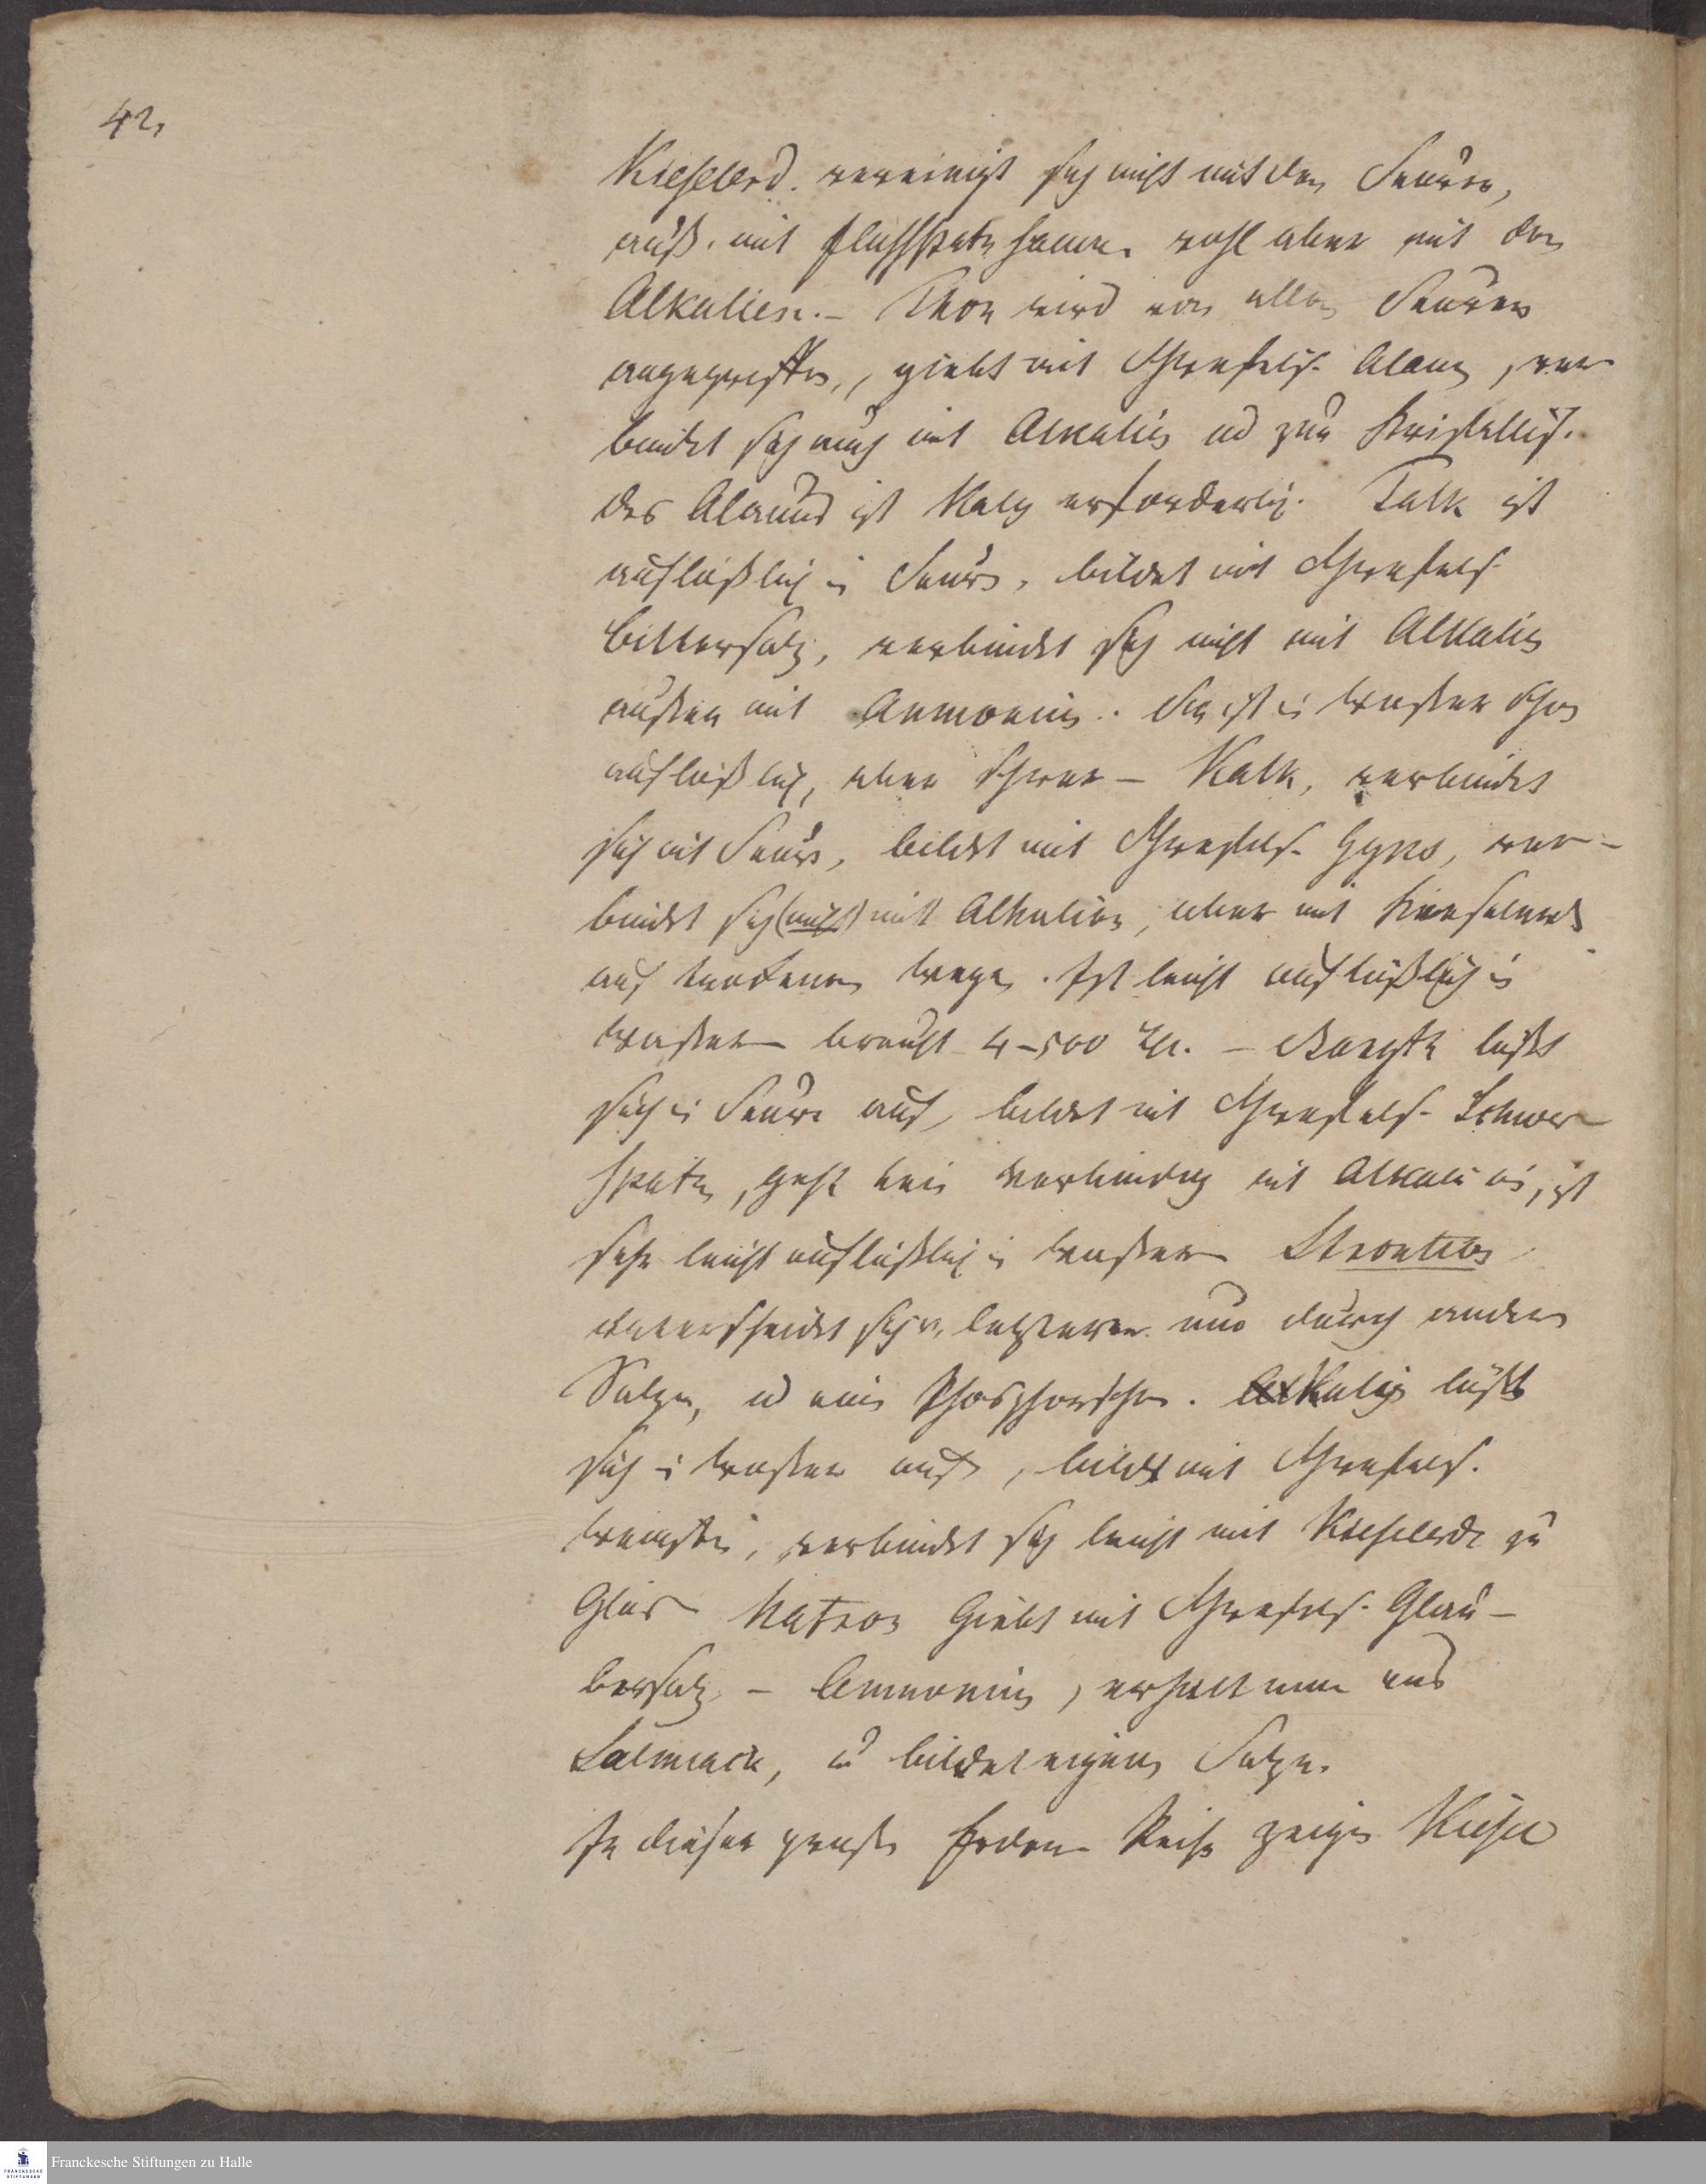 42,
Kieselerd. vereinigt sich nicht mit den Säuren,
auß. mit flußspatsäure. wohl aber mit den
Alkalien. – Thon wird von allen Säuren
angegriffen, giebt mit Schwefels. Alaun, ver
bindet sich auch mit Alkalien ud zur Kristallis.
des Alauns ist Kaly erforderlich. Talk ist
auflößlich in Säure, bildet mit Schwefels.
Bittersalz, verbindet sich nicht mit Alkalien
außer mit Ammonium. Sie ist in Wasser schon
auflößlich, aber schwer – Kalk, verbindet
sich mit Säure, bildet mit Schwefels. Gyps, ver-
bindet sich (nicht) mit Alkalien, aber mit Kieselerde
auf trockenen Wege. Ist leicht auflößlich in
Wasser braucht 4–500 Th. – Baryth lößt
sich in Säure auf, bildet mit Schwefels. Schwer
spath, geht kein Verbindung mit Alkali ein, ist
sehr leicht auflößlich in Wasser Strontian
unterscheidet sich v. letzterer nur durch andere
Salze, ud ein Phosphorschein. Kaly lößt
sich in Wasser auf, bildet mit Schwefels.
Weinstein, verbindet sich leicht mit Kieselerde zu
Glas Natron Giebt mit Schwefels. Glau-
bersalz – Ammonium, erhält man aus
Salmiack, u bildet eigene Salze.
In dieser großen Erden Reihe zeigen Kiesel
Franckesche Stiftungen zu Halle